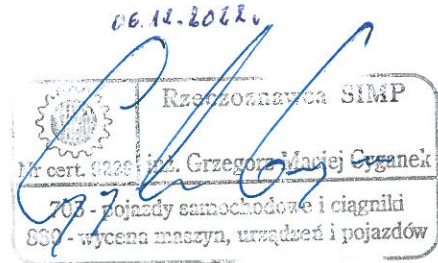 06.12.2022r
Rzeczoznawca SIMP
Nr cert. inż. Grzegorz Maciej Cyganek
703 - pojazdy samochodowe i ciągniki
830 - wycena maszyn, urządzeń i pojazdów